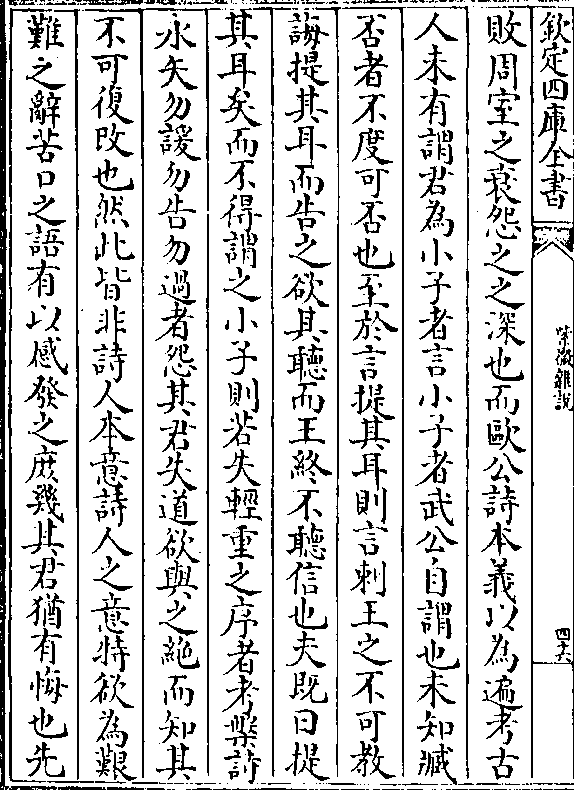 欽定四庫全書
紫微雜說
四六
敗周室之衰怨之之深也而歐公詩本義以為遍考古
人未有謂君為小子者言小子者武公自謂也未知臧
否者不度可否也至於言提其耳則言刺王之不可教
誨提其耳而告之欲其聽而王終不聽信也夫既曰提
其耳矣而不得謂之小子則若失輕重之序者考槃詩
永矢勿諼勿告勿過者怨其君失道欲與之絶而知其
不可復改也然此皆非詩人本意詩人之意特欲為艱
難之辭苦口之語有以感發之庶幾其君猶有悔也先